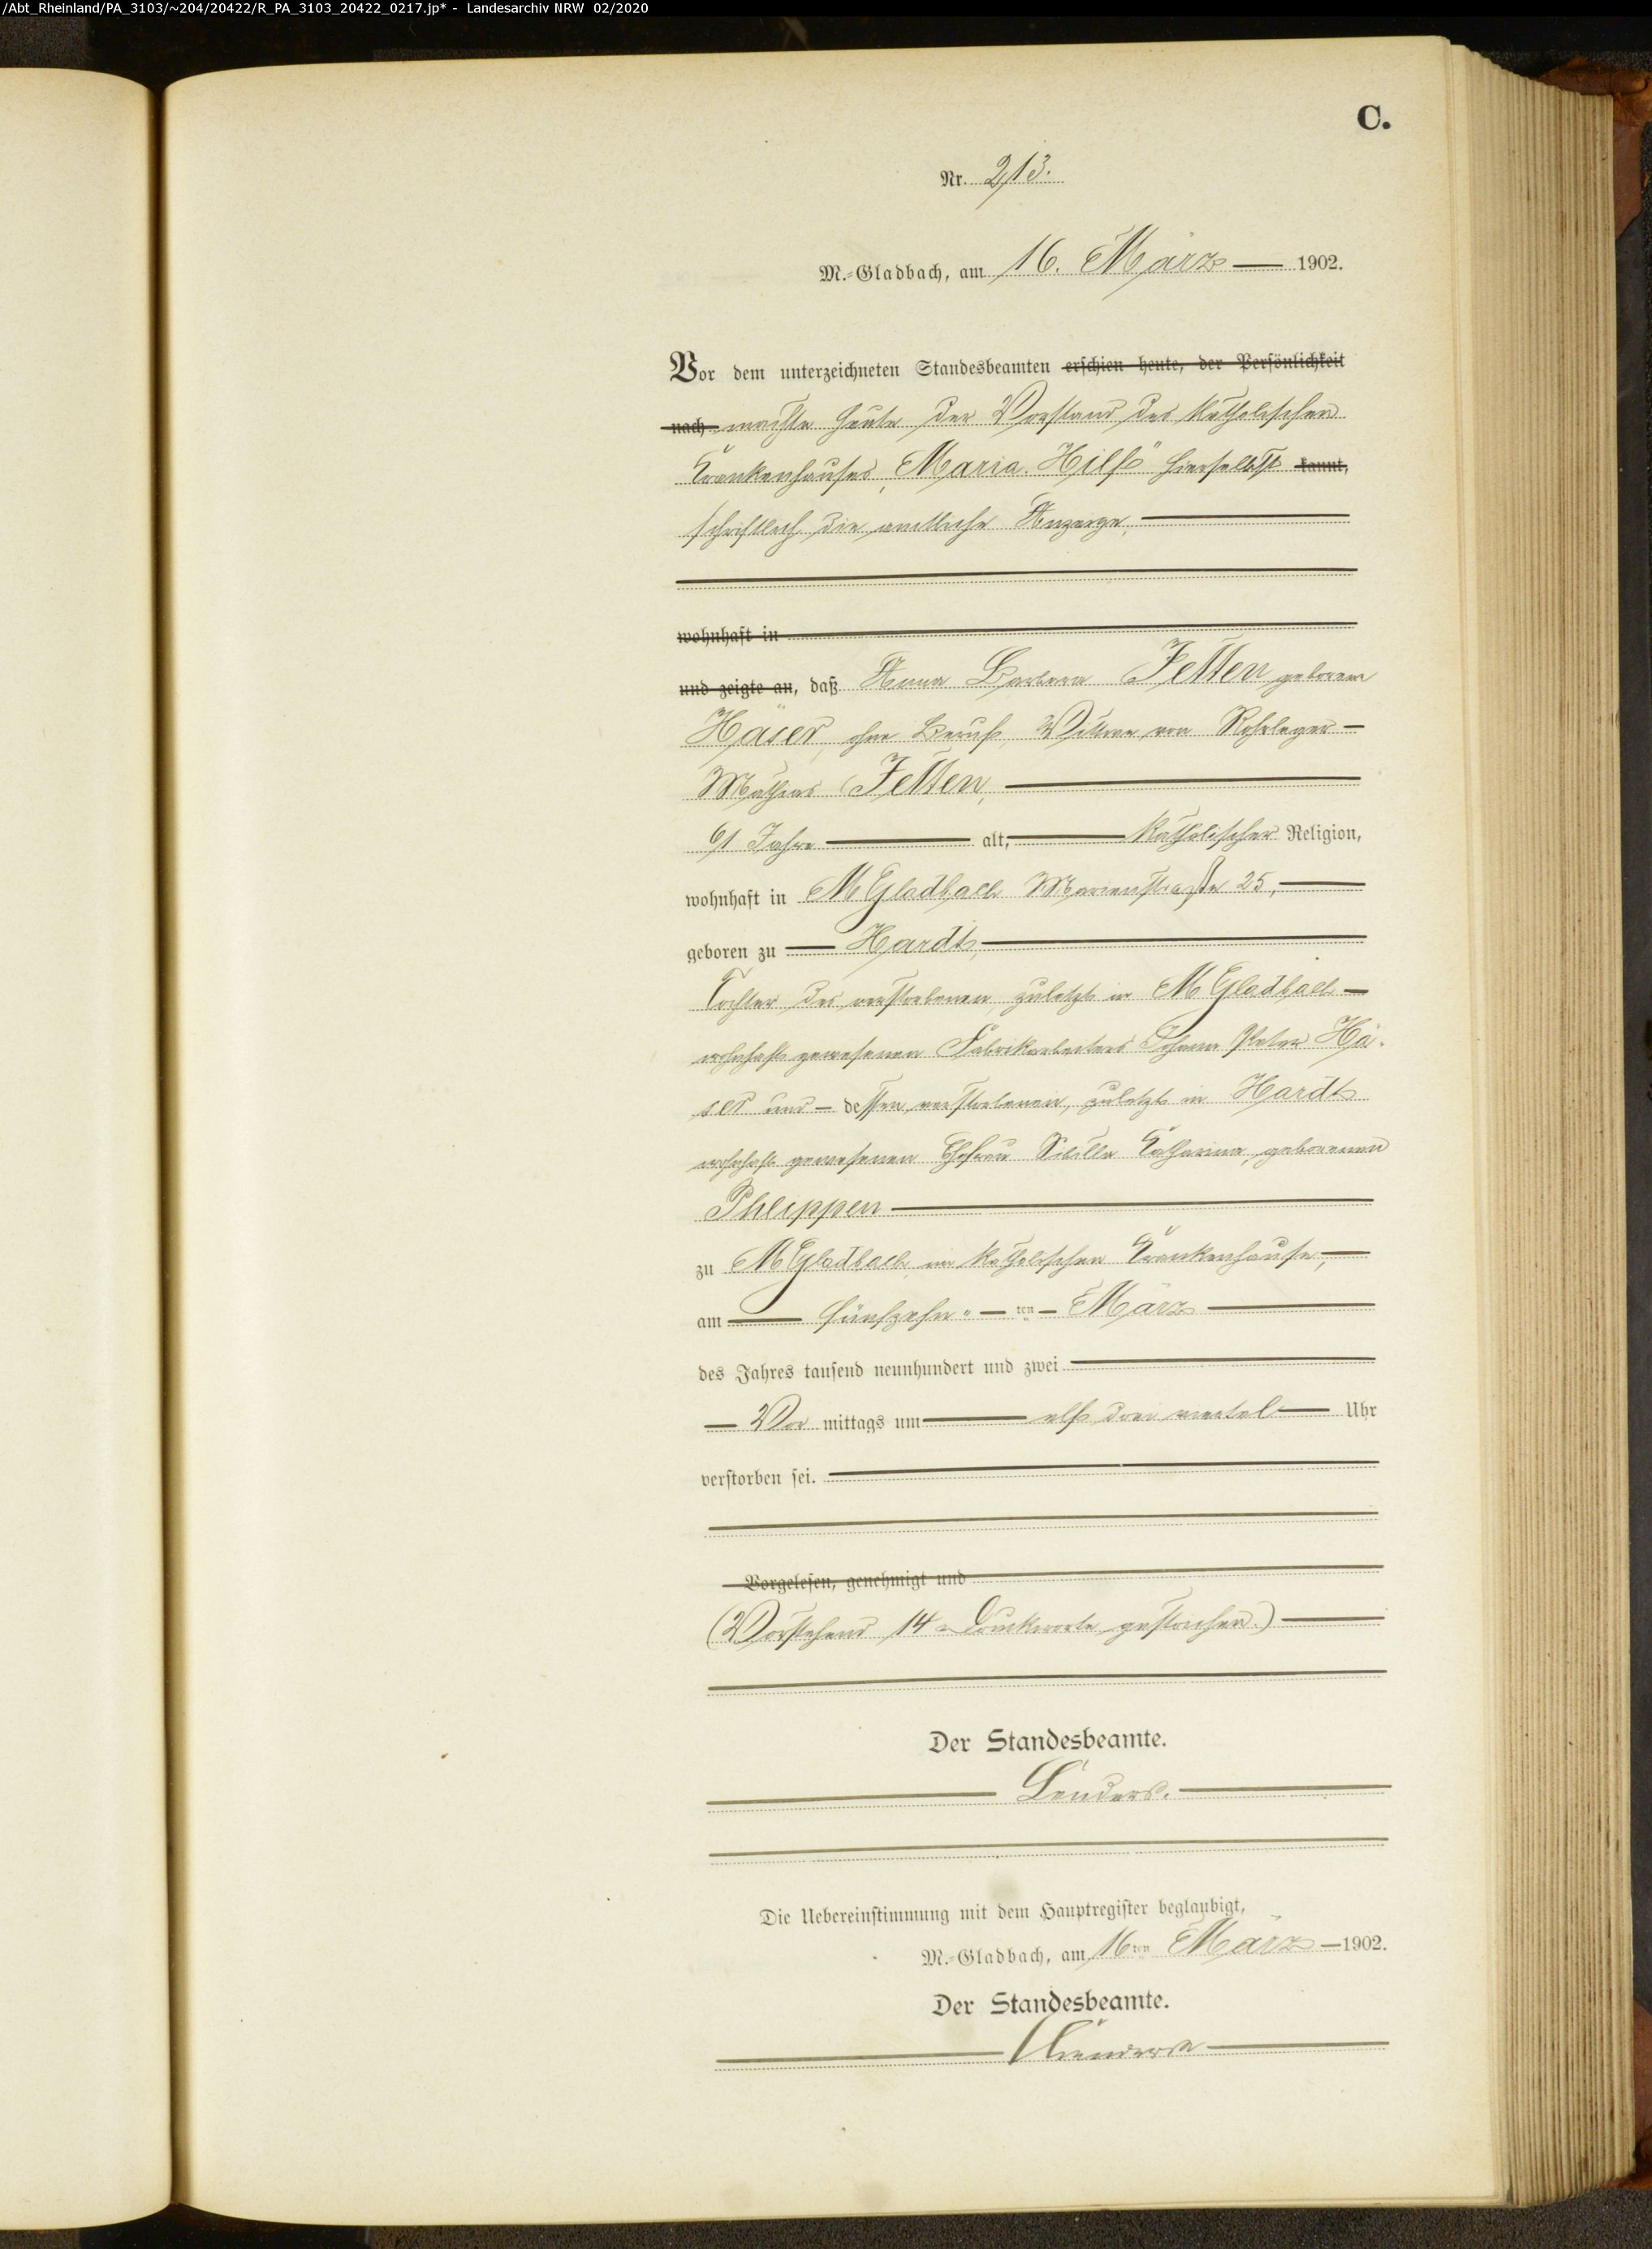 /Abt_Rheinland/PA_3103/~204/20422/R_PA_3103_20422_0217.jp* - Landesarchiv NRW 02/2020
C.
Nr. 213.
M.-Gladbach, am 16. März 1902.
Vor dem unterzeichneten Standesbeamten erschien heute, der Persönlichkeit
nach machte heute der Vorstand des katholischen
Krankenhauses „Maria Hilf" hierselbst kannt,
schriftlich die amtliche Anzeige,
wohnhaft in
und zeigte an, daß Anna Barbara Jetten geborene
Häser, ohne Beruf, Wittwe von Rohrleger
Mathias Jetten,
61 Jahre alt, katholischer Religion,
wohnhaft in M Gladbach Marienstraße 25,
geboren zu Hardt,
Tochter des verstorbenen, zuletzt in M Gladbach
wohnhaft gewesenen Fabrikarbeiters Johann Peter Hä-
ser und dessen verstorbenen, zuletzt in Hardt
wohnhaft gewesenen Ehefrau Sibilla Catharina, geborenen
Phlippen
zu M Gladbach, im katholischen Krankenhause,
am fünfzehn ten März
des Jahres tausend neunhundert und zwei
Vor mittags um elf drei viertel Uhr
verstorben sei.
Vorgelesen, genehmigt und
(Vorstehend 14 Druckworte gestrichen.)
Der Standesbeamte.
Lenders.
Die Uebereinstimmung mit dem Hauptregister beglaubigt,
M.-Gladbach, am 16ten März 1902.
Der Standesbeamte.